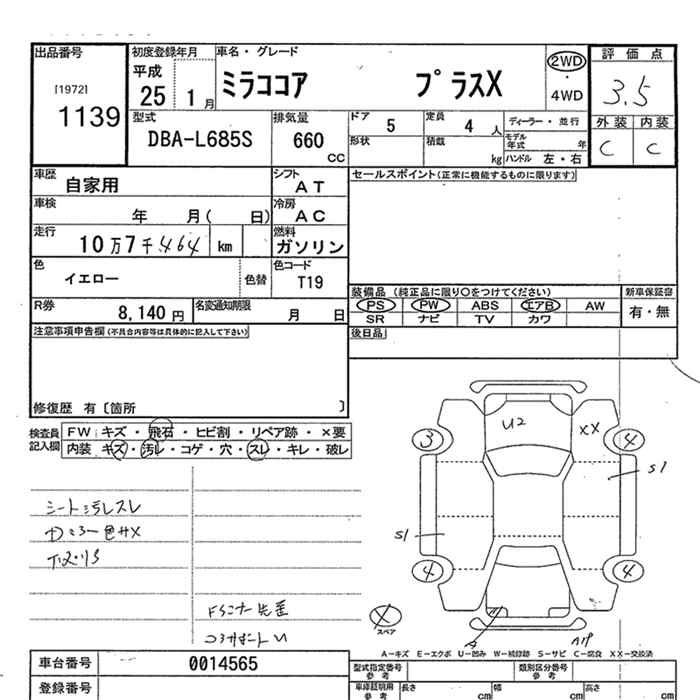 出品番号
[1972]
1139
初度登録年月
平成
25
1月
車名・グレード
ミラココア プラスX
2WD
・
4WD
評価点
3.5
外装 内装
C C
型式
DBA-L685S
排気量
660
CC
ドア
5
定員
4人
ディーラー・並行
形状
積載
kg
モデル年式 年
ハンドル 左・右
車歴
自家用
シフト
AT
セールスポイント(正常に機能するものに限ります)
車検
年 月( 日)
冷房
AC
走行
10万7千464 km
燃料
ガソリン
色
イエロー
色替
色コード
T19
装備品 (純正品に限り○をつけてください)
新車保証書
PS PW ABS エアB AW
有・無
SR ナビ TV カワ
R券
8,140円
名変通知期限
月 日
後日品
注意事項申告欄(不具合内容等は具体的に記入して下さい)
修復歴 有〔箇所 〕
検査員記入欄
FW キズ・飛石・ヒビ割・リペア跡・×要
内装 キズ・汚レ・コゲ・穴・スレ・キレ・破レ
U2
XX
3
4
S1
シート汚レスレ
S1
4
4
スペア
A
A-キズ E-エクボ U-凹み W-補修跡 S-サビ C-腐食 XX-交換済
車台番号
0014565
型式指定番号
参考
類別区分番号
参考
登録番号
車庫証明用
参考
長さ cm
幅 cm
高さ cm